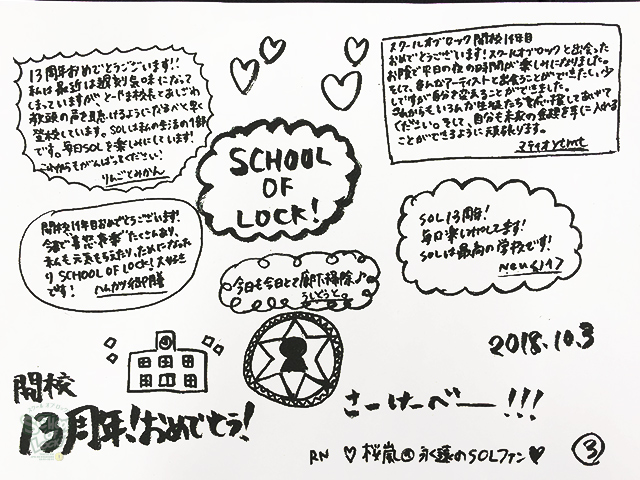 13周年おめでとうございます!!
私は最近は遅刻気味になって
しまっていますが とーやま校長とあしざわ
教頭の声を聴けるようになるべく早く
登校しています。SOLは私の生活の1部
です。毎日SOLを楽しみにしています!
これからもがんばってください!
りんごとみかん
スクールオブロック開校14年目
おめでとうございます!スクールオブロックと出会った
お陰で平日の夜の時間が楽しみになりました。
そして、まんなアーティストと出会うことができたし、少
しですが自分を変えることができました。
これからもいろんな生徒たちを 後押ししてあげて
ください。そして、自分も未来の鍵を手に入れる
ことができるように頑張ります。
マティオytmt
SCHOOL
OF
LOCK!
開校14年目おめでとうございます!
今まで"喜怒哀楽"たくさんあり、
私も元気もらったり、ためになった
り SCHOOL OF LOCK! 大好き
です!
へんがり御膳
今日も今日とて廊下掃除♪
うしどうと。
SOL13周年!
毎日楽しみにしてます!
SOLは最高の学校です!
Neuくハフ
2018.10.3
開校
13周年!おめでとう!
さーけーべー!!!
RN ♡桜嵐㋰永遠のSOLファン♥
③